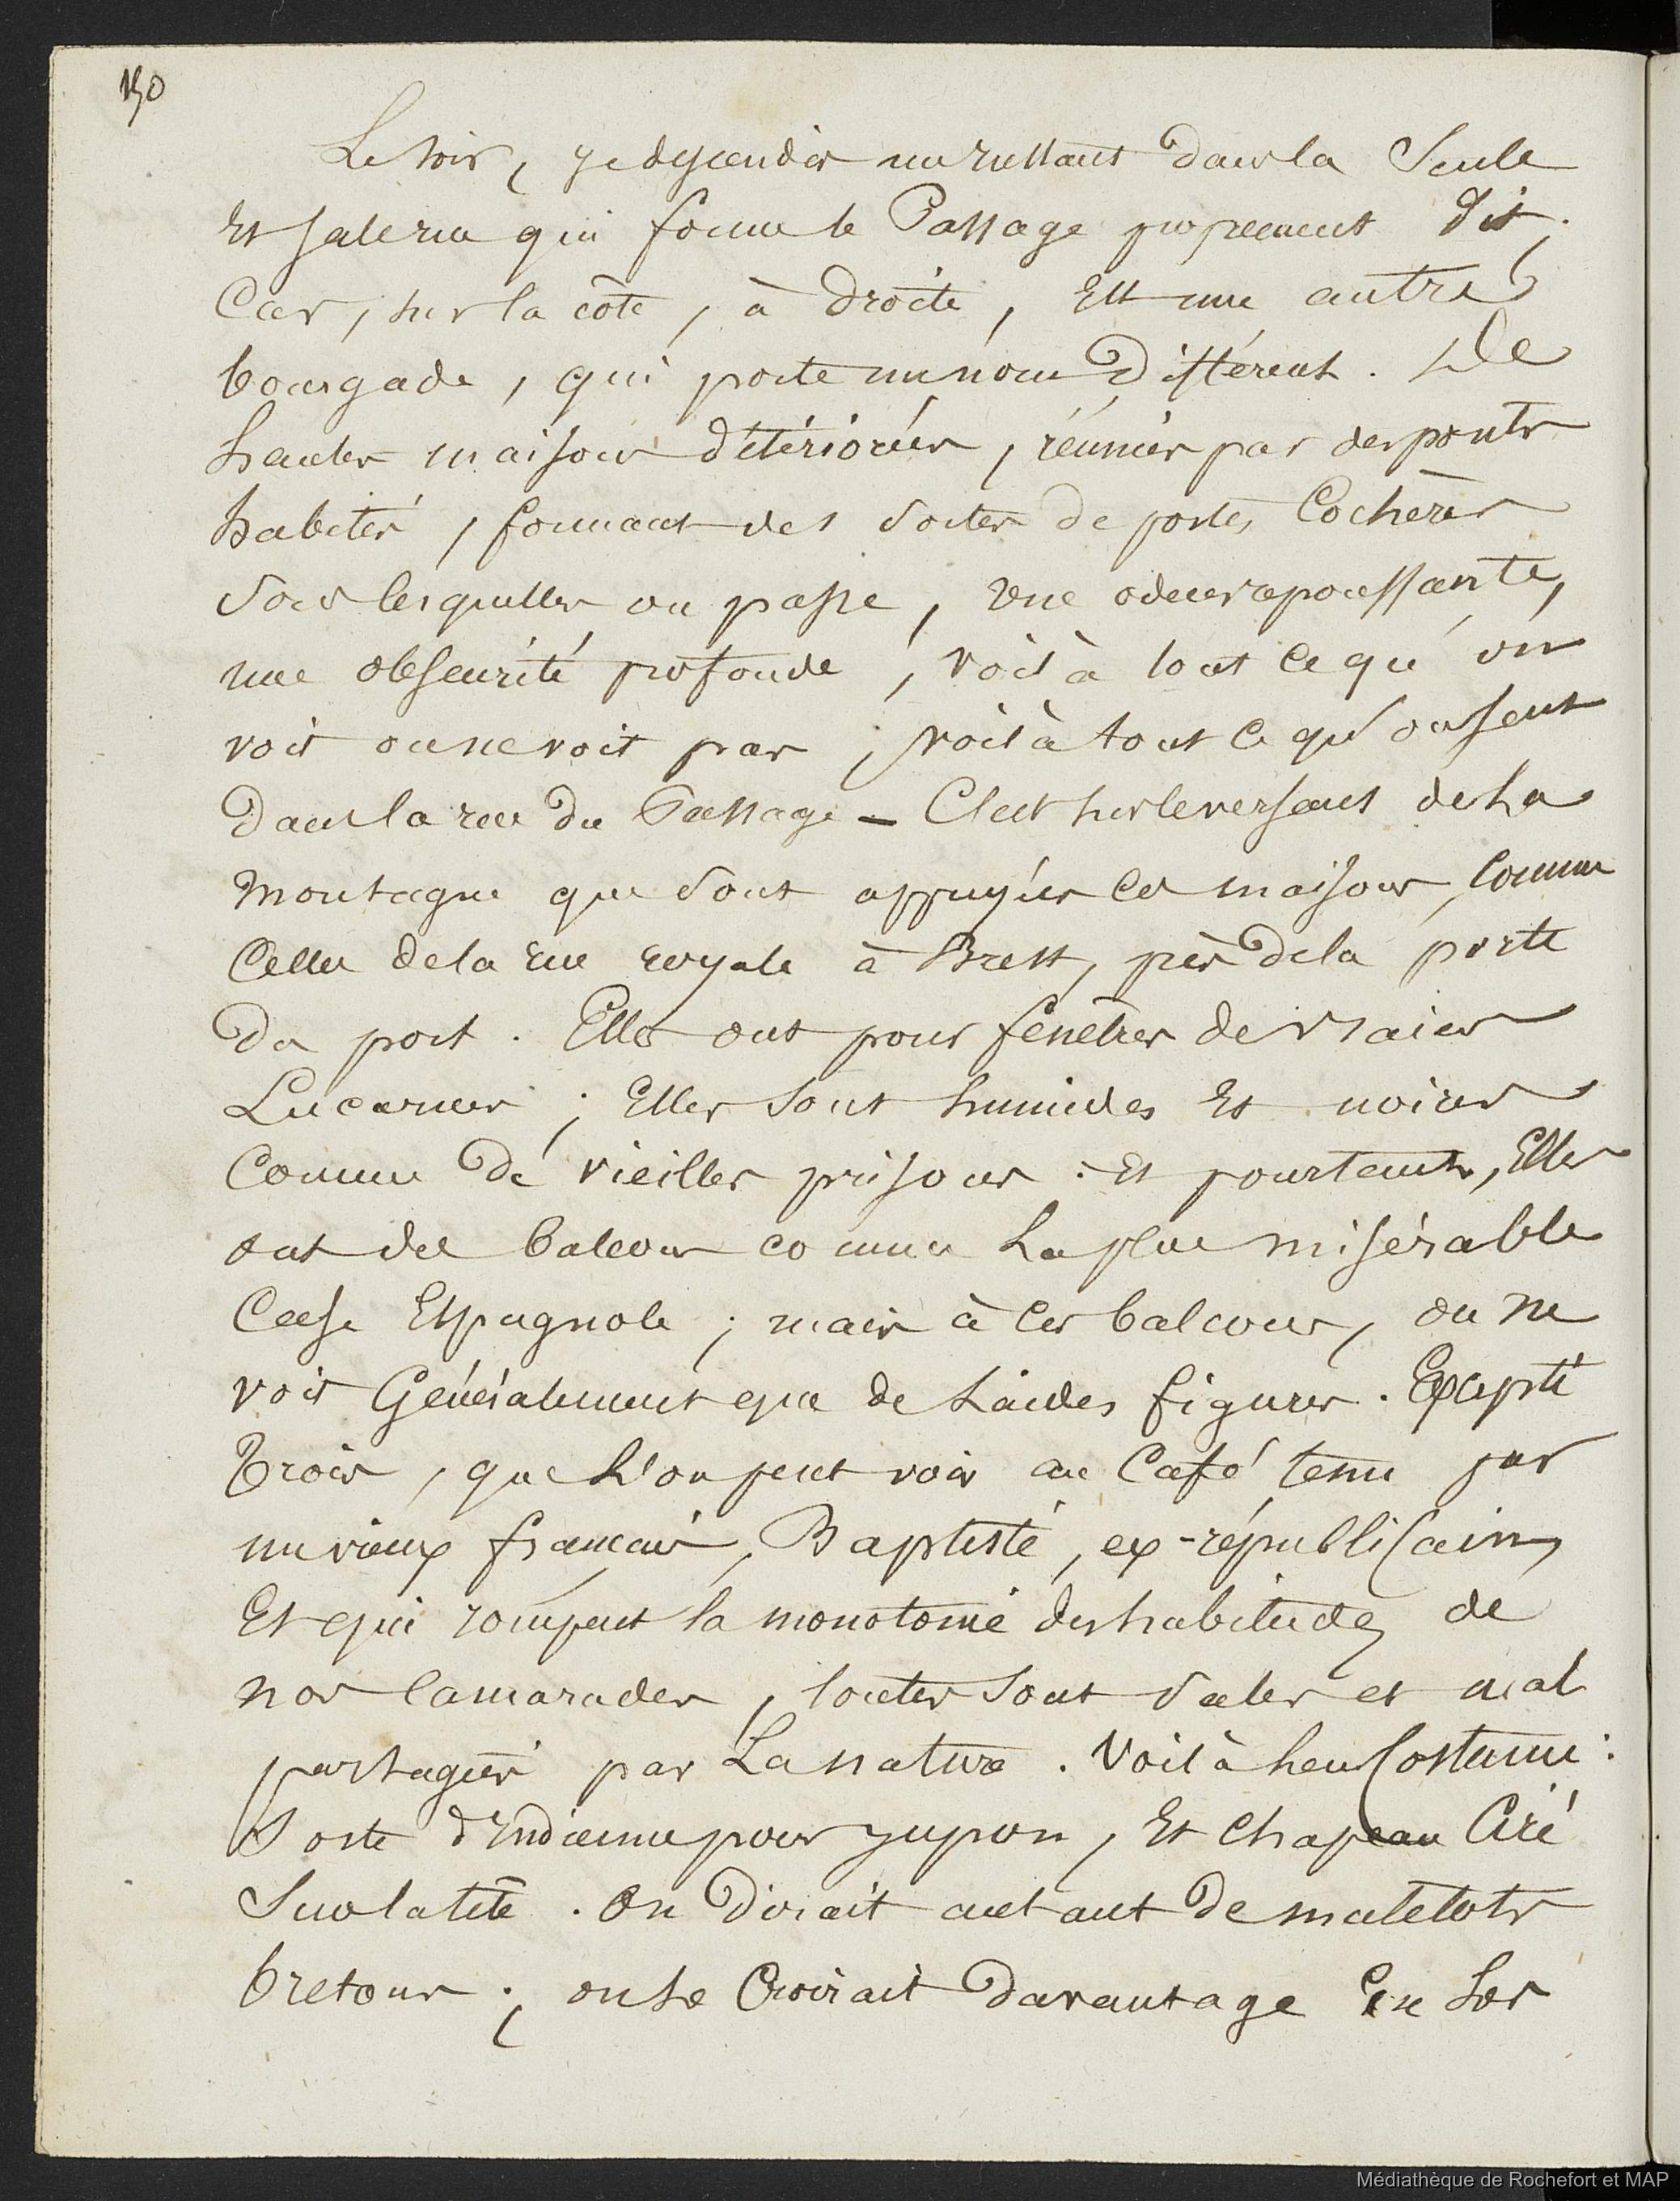 150
Le soir, je descendis un instant dans la Seule
Et sale rue qui forme le Passage proprement dit ;
Car, sur la côte, à Droite, Est une autre
bourgade, qui porte un nom Différent. De
hautes maisons détériorées, réunies par des ponts
habités, formant des sortes de portes Cochères
sous lesquelles on passe, une odeur repoussante,
une obscurité profonde, voilà tout ce qu'on
voit ou ne voit pas ; voilà tout ce qu'on sent
Dans la rue Du Passage - C'est sur le versant de La
Montagne que sont appuyées ces maisons, Comme
Celles de la rue royale à Brest, près de la porte
Du port. Elles ont pour fenêtres de vraies
Lucarnes ; Elles sont humides Et noires
Comme De vieilles prisons : Et pourtant, Elles
ont des balcons comme La plus misérable
Case Espagnole ; mais à ces balcons, on ne
voit Généralement que de Laides figures. Excepté
Trois, que L'on peut voir au Café tenu par
un vieux français, Baptiste, ex-républicain,
Et qui rompent la monotonie des habitudes de
nos Camarades, toutes sont sales et mal
partagées par La nature. Voilà leur Costume :
Sorte d'Indienne pour jupon, Et Chapeau Ciré
Sur la tête. On Dirait autant De matelots
bretons ; on se Croirait Davantage En Ses